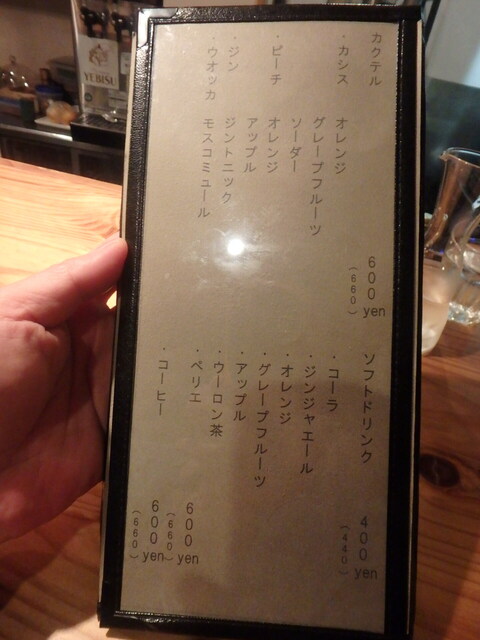 カクテル
600 yen
(660)
・カシス オレンジ
グレープフルーツ
ソーダー
・ピーチ オレンジ
アップル
・ジン ジントニック
・ウオッカ モスコミュール
ソフトドリンク
400 yen
(440)
・コーラ
・ジンジャエール
・オレンジ
・グレープフルーツ
・アップル
・ウーロン茶
・ペリエ 600 yen
(660)
・コーヒー 600 yen
(660)
YEBISU